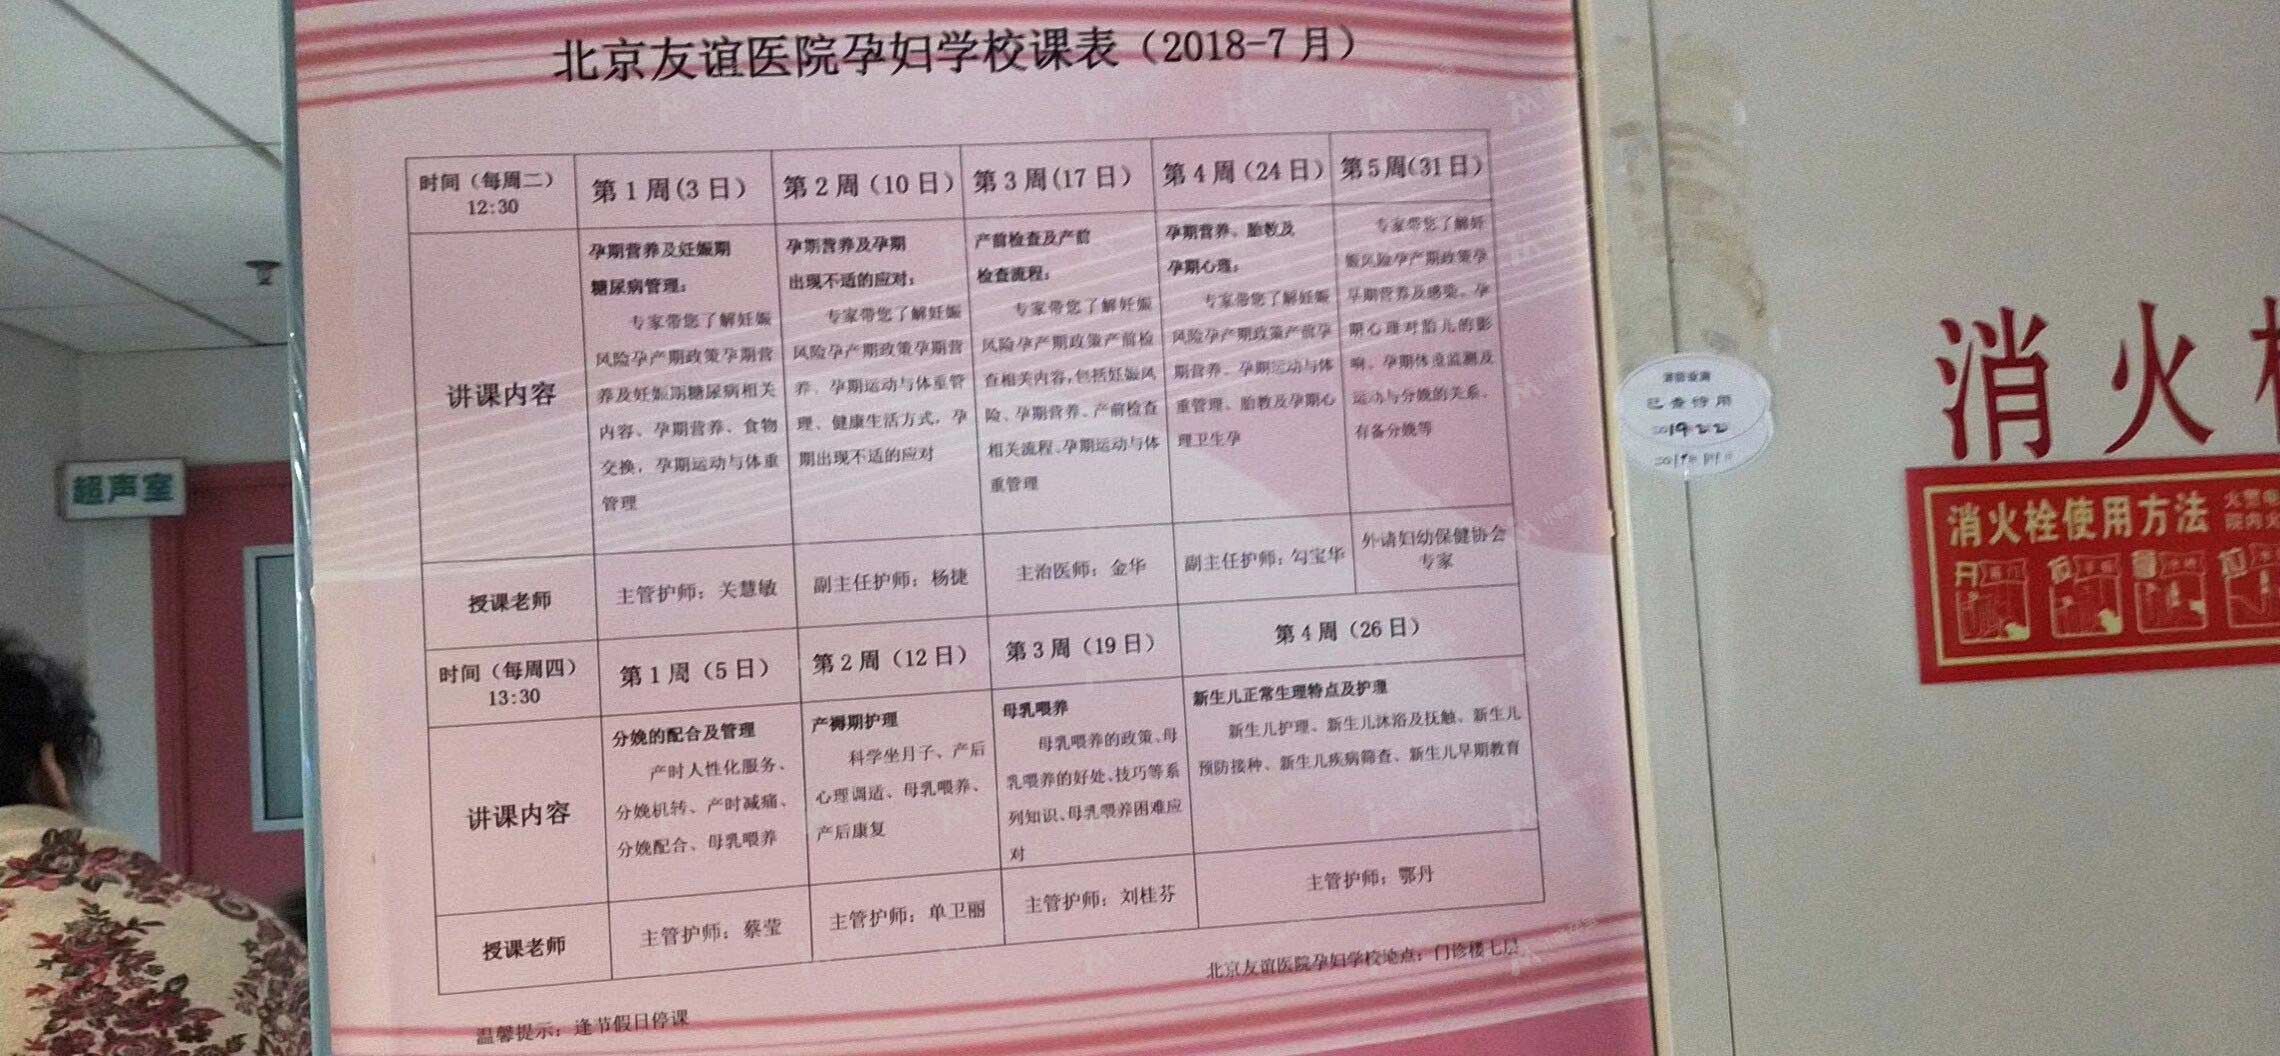 北京友谊医院孕妇学校课表（2018-7月）
时间（每周二）
12:30
第1周(3日)
第2周（10日）
第3周(17日)
第4周（24日）
第5周(31日)
讲课内容
孕期营养及妊娠期
糖尿病管理：
专家带您了解妊娠
风险孕产期政策孕期营
养及妊娠期糖尿病相关
内容、孕期营养、食物
交换，孕期运动与体重
管理
孕期营养及孕期
出现不适的应对：
专家带您了解妊娠
风险孕产期政策孕期营
养、孕期运动与体重管
理、健康生活方式，孕
期出现不适的应对
产前检查及产前
检查流程：
专家带您了解妊娠
风险孕产期政策产前检
查相关内容,包括妊娠风
险、孕期营养、产前检查
相关流程、孕期运动与体
重管理
孕期营养、胎教及
孕期心理：
专家带您了解妊娠
风险孕产期政策产前孕
期营养、孕期运动与体
重管理、胎教及孕期心
理卫生孕
专家带您了解妊
娠风险孕产期政策孕
早期营养及感染、孕
期心理对胎儿的影
响、孕期体重监测及
运动与分娩的关系、
有备分娩等
授课老师
主管护师：关慧敏
副主任护师：杨捷
主治医师：金华
副主任护师：勾宝华
外请妇幼保健协会
专家
时间（每周四）
13:30
第1周（5日）
第2周（12日）
第3周（19日）
第4周（26日）
讲课内容
分娩的配合及管理
产时人性化服务、
分娩机转、产时减痛、
分娩配合、母乳喂养
产褥期护理
科学坐月子、产后
心理调适、母乳喂养、
产后康复
母乳喂养
母乳喂养的政策、母
乳喂养的好处、技巧等系
列知识、母乳喂养困难应
对
新生儿正常生理特点及护理
新生儿护理、新生儿沐浴及抚触、新生儿
预防接种、新生儿疾病筛查、新生儿早期教育
授课老师
主管护师：蔡莹
主管护师：单卫丽
主管护师：刘桂芬
主管护师：鄂丹
北京友谊医院孕妇学校地点：门诊楼七层
温馨提示：逢节假日停课
超声室
消火
消火栓使用方法
火警
院内